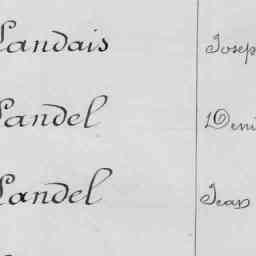 Landais Josep
Landel Deni
Landel Jean